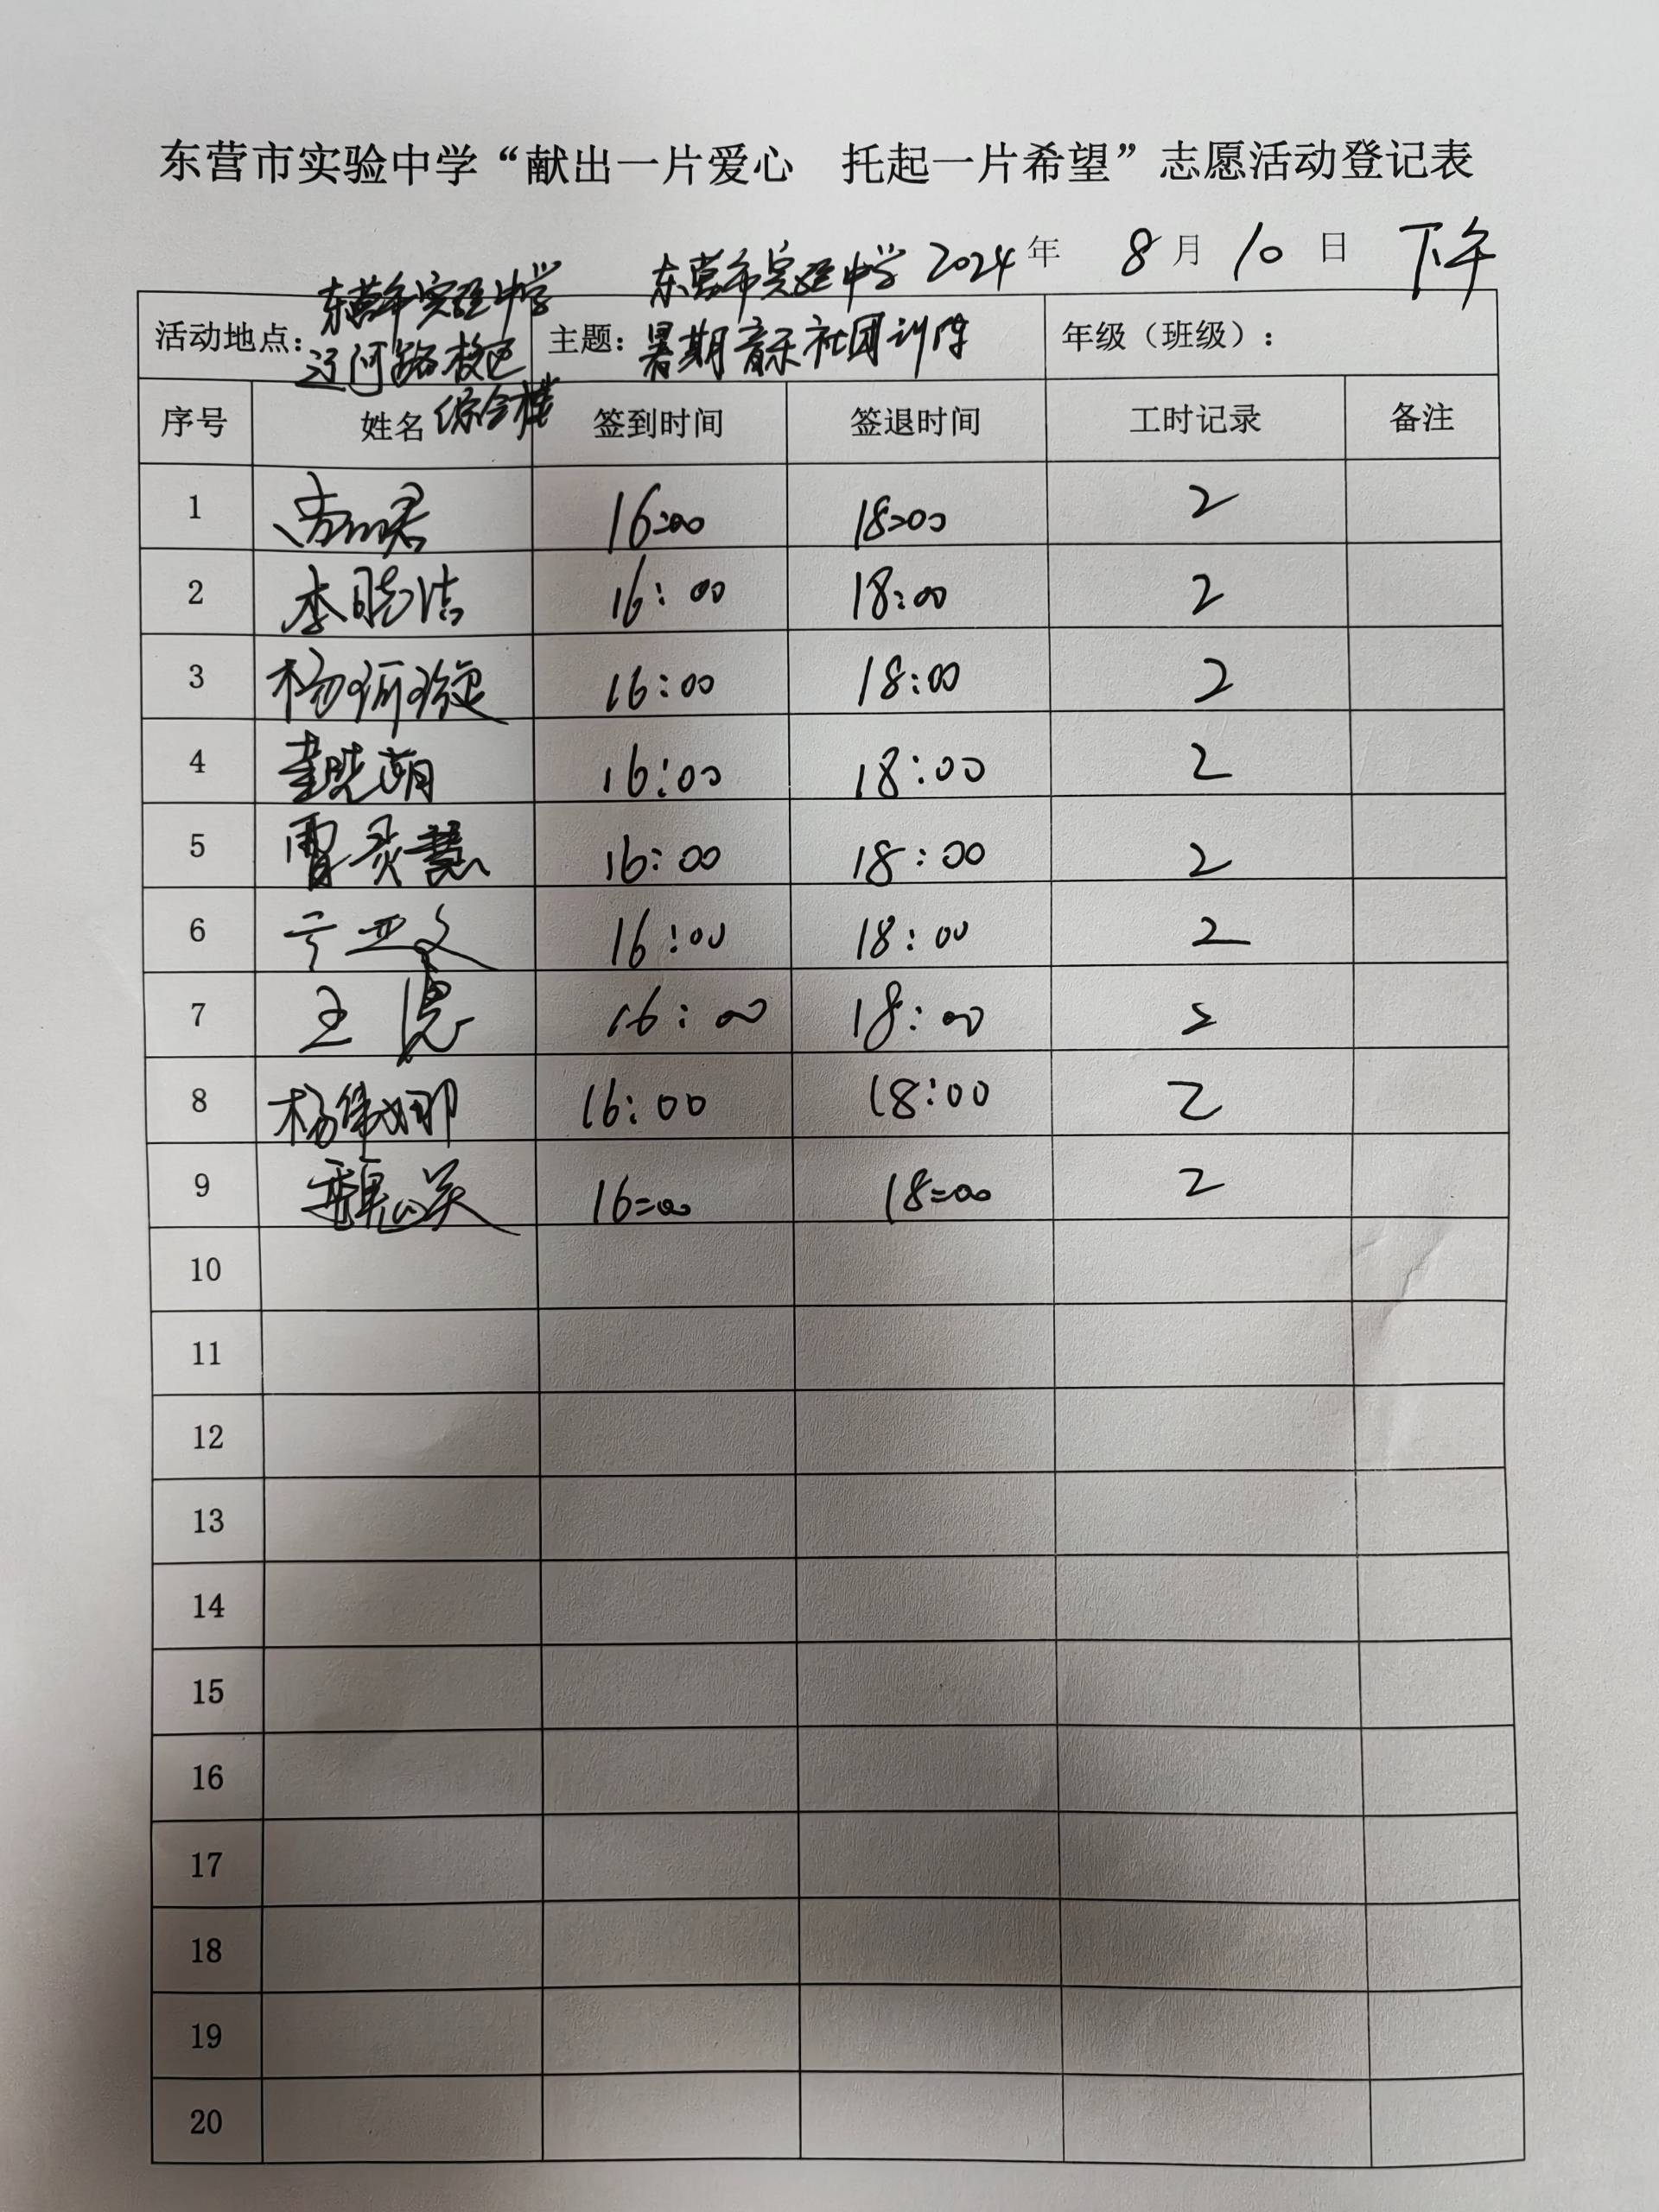 东营市实验中学“献出一片爱心 托起一片希望”志愿活动登记表
2024年 8月 10日 下午
活动地点: 东营市实验中学 辽河路校区 综合楼 主题: 东营市实验中学 暑期音乐社团训练 年级（班级）:
序号 姓名 签到时间 签退时间 工时记录 备注
1 16:00 18:00 2
2 李晓洁 16:00 18:00 2
3 杨 16:00 18:00 2
4 董晓萌 16:00 18:00 2
5 曹灵慧 16:00 18:00 2
6 16:00 18:00 2
7 王 16:00 18:00 2
8 杨伟娜 16:00 18:00 2
9 16:00 18:00 2
10
11
12
13
14
15
16
17
18
19
20